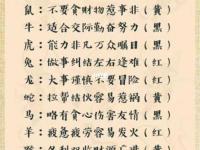 鼠：不要貪财物惹事非（黄）
牛：适合交际勤奋努力（黑）
虎：能力非凡万众瞩目（黑）
兔：做事纠结左右逢难（红）
龙：大事谨慎不要冒险（红）
蛇：拉帮结伙容易惹祸（黄）
马：略有贪心伤害友情（黑）
羊：疲惫疲劳容易发火（红）